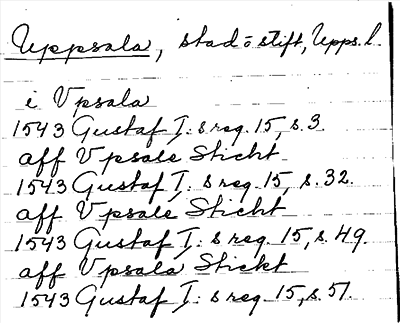 Uppsala, stad o stift, Upps. l.
i Vpsala
1543 Gustaf I: s reg. 15, s. 3
aff Vpsale Sticht
1543 Gustaf I: s reg. 15, s. 32.
aff Vpsale Sticht
1543 Gustaf I: s reg. 15, s. 49.
aff Vpsala Stickt
1543 Gustaf I: s reg. 15, s. 51.